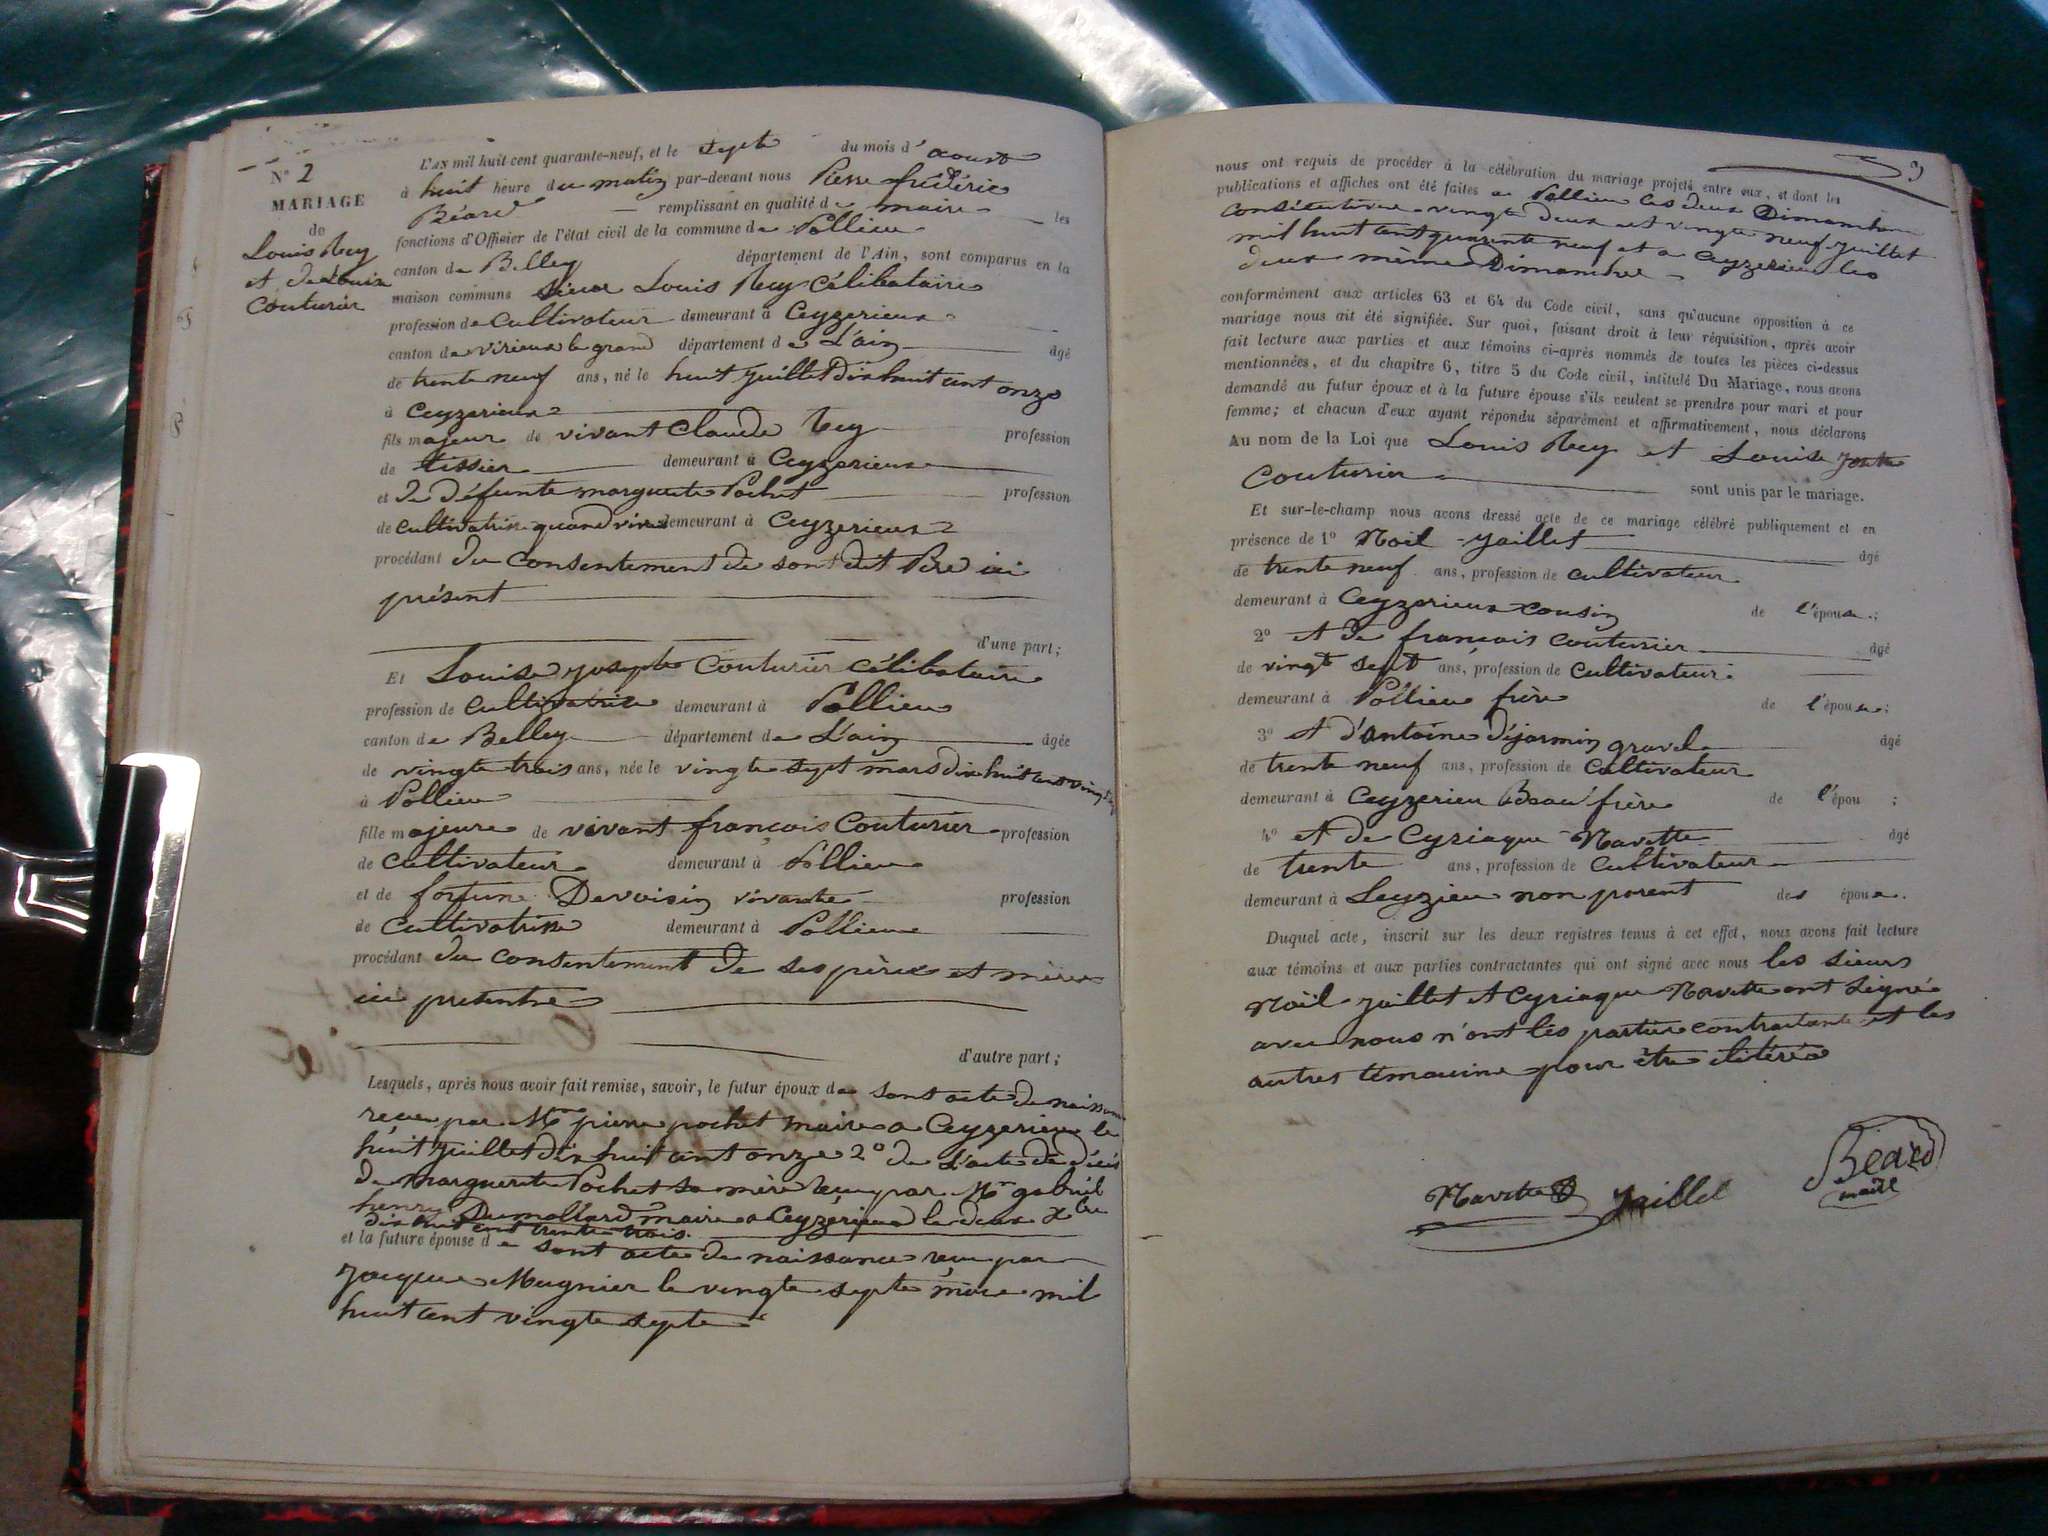 N° 2
MARIAGE
de
Louis Rey
et de Louise
Couturier
L'AN mil huit cent quarante-neuf, et le septe du mois d'aoust
à huit heure du matin par-devant nous Pierre frédéric
Béard remplissant en qualité de maire les
fonctions d'Officier de l'état civil de la commune de Pollieu
canton de Belley département de l'Ain, sont comparus en la
maison commune Sieur Louis Rey célibataire
profession de Cultivateur demeurant à Ceyzerieux
canton de virieux le grand département de L'ain âgé
de trente neuf ans, né le huit juillet dix huit cent onze
à Ceyzerieux
fils majeur de vivant Claude Rey profession
de tissier demeurant à Ceyzerieux
et de défeunte marguerite Pochet profession
de cultivatrise quand vivai demeurant à Ceyzerieux
procédant du consentement de sont dit Père ici
présent
d'une part;
Et Louise josephe Couturier célibataire
profession de Cultivatrise demeurant à Pollieu
canton de Belley département de L'ain âgée
de vingte trois ans, née le vingte sept mars dix huit cent vingt
à Pollieu
fille majeure de vivant françois Couturier profession
de Cultivateur demeurant à Pollieu
et de fortune Devoisin vivante profession
de Cultivatrise demeurant à Pollieu
procédant du consentement de ses père et mère
ici présentre
d'autre part;
Lesquels, après nous avoir fait remise, savoir, le futur époux de sont acte de naissance
reçue par Mr pierre pochet maire a Ceyzerieu le
huit juillet dix huit cent onze 2° de L'acte de décès
de Marguerite Pochet sa mère reçu par Mr gabriel
henry Dumollard maire a Ceyzérieu le deux xbre
dix huit cent trente trois.
et la future épouse de sont acte de naissance reçu par
Jacque Mugnier le vingte septe mars mil
huit cent vingte septe
nous ont requis de procéder à la célébration du mariage projeté entre eux, et dont les
publications et affiches ont été faites a Pollieu les deux Dimanche
consécutive vingte deux et vingte neuf juillet
mil huit cent quarente neuf et a Ceyzerieu les
deux même Dimanche
conformément aux articles 63 et 64 du Code civil, sans qu'aucune opposition à ce
mariage nous ait été signifiée. Sur quoi, faisant droit à leur réquisition, après avoir
fait lecture aux parties et aux témoins ci-après nommés de toutes les pièces ci-dessus
mentionnées, et du chapitre 6, titre 5 du Code civil, intitulé Du Mariage, nous avons
demandé au futur époux et à la future épouse s'ils veulent se prendre pour mari et pour
femme; et chacun d'eux ayant répondu séparément et affirmativement, nous déclarons
Au nom de la Loi que Louis Rey et Louise
Couturier sont unis par le mariage.
Et sur-le-champ nous avons dressé acte de ce mariage célébré publiquement et en
présence de 1° Noël Jaillet âgé
de trente neuf ans, profession de cultivateur
demeurant à Ceyzerieux cousin de l'épouse;
2° et de françois Couturier âgé
de vingt sept ans, profession de Cultivateur
demeurant à Pollieu frère de l'épouse;
3° et d'antoine déjarmin gravel âgé
de trente neuf ans, profession de Cultivateur
demeurant à Ceyzerieu Beau frère de l'épou ;
4° et de Cyriaque Navette âgé
de trente ans, profession de Cultivateur
demeurant à Leyzieu non parent des époue.
Duquel acte, inscrit sur les deux registres tenus à cet effet, nous avons fait lecture
aux témoins et aux parties contractantes qui ont signé avec nous les sieurs
Noël Jaillet et Cyriaque Navette ont signé
avec nous n'ont les partie contractante et les
autres témoine pour être iliteré
Navette Jaillet Béard
maire